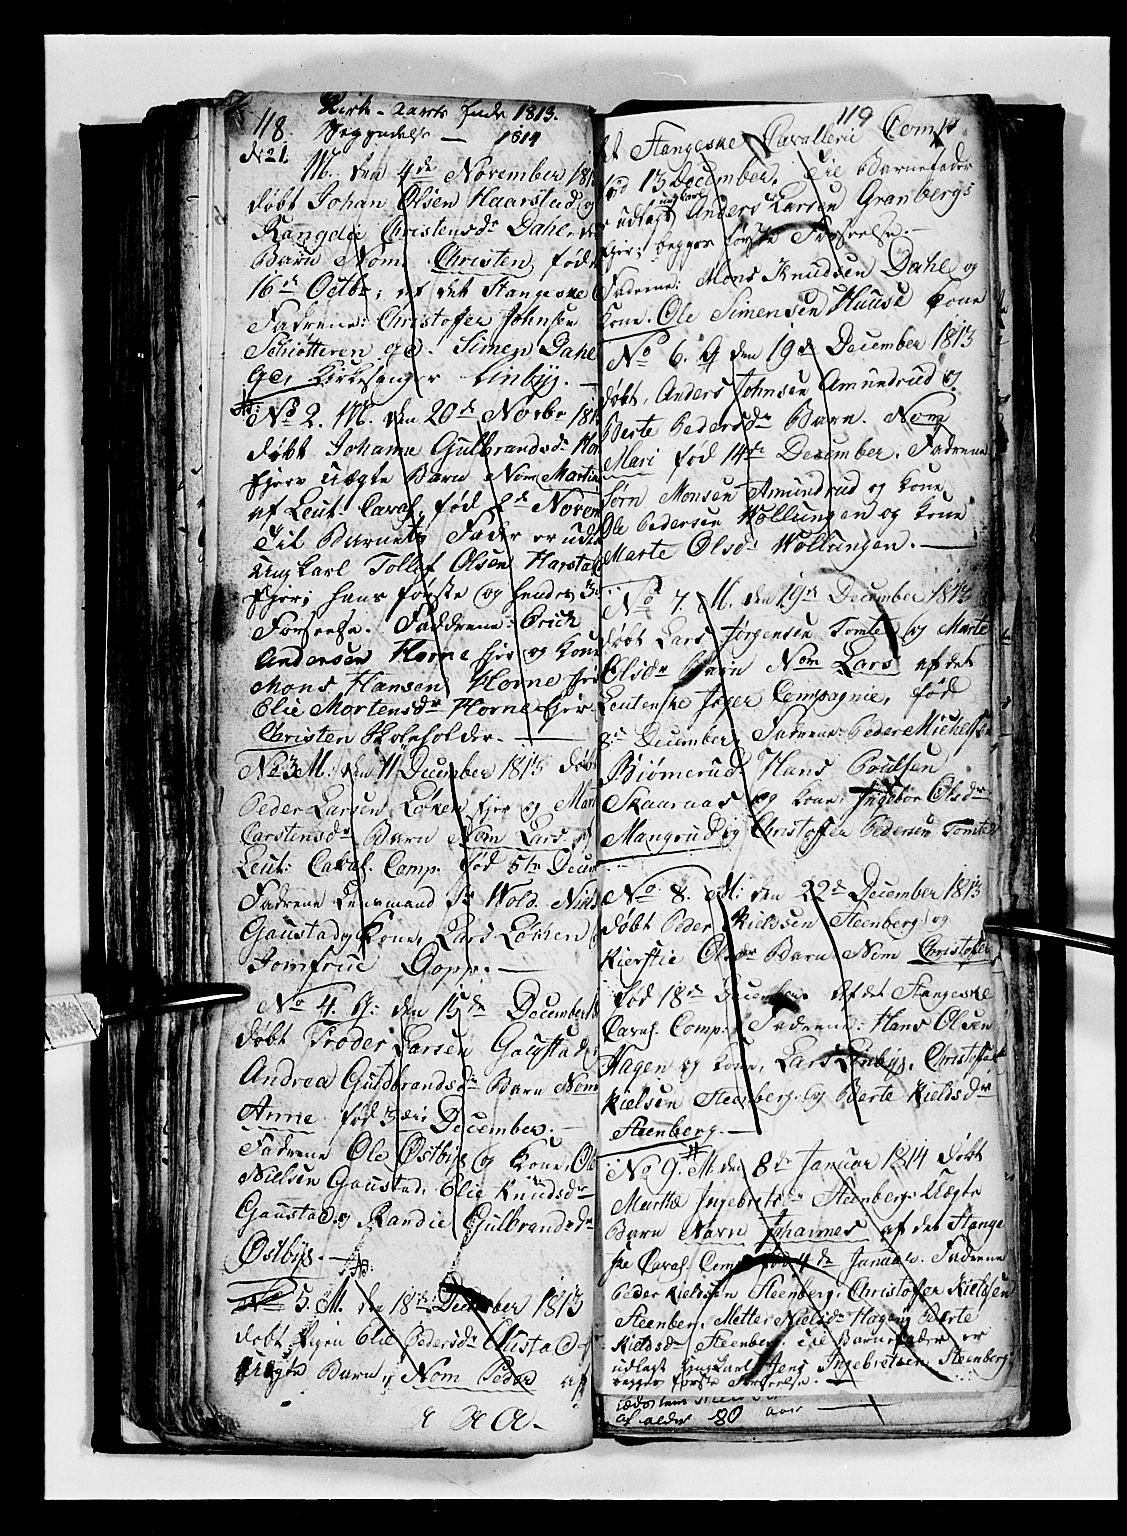 118.
Kirke-Aarets Ende 1813.
Begyndelse — 1814
No 1.
M. den 4de November 181
døbt Johan Olsen Haarstad og
Rangdie Christensdr Dahl
Barn Nom. Christen, fød
16de Octbr; af det Stangeske
Fadrene: Christoffer Johnsen
Schiøtteren gd. Simen Dahl
gd, Kirkesanger Linbye. —
No 2. M. den 20de Novbr 181
døbt Johanne Gulbrandsdr Hor
Ejer Uægte Barn Nom Martin
af Leut. Caval. fød 2de Novem
Til Barnets Fader er udl
Ungkarl Tollef Olsen Harstad
Ejer; hans første og hendes 3
Forseelse. Faddrene: Erick
Andersen Horne Ejer og Kone
Mons Hansen Horne Ejer
Elie Mortensdr Horne Ejer.
Christen Skoleholder. —
No 3 M: den 11 December 1813 døbt
Peder Larsen Løken Ejer og Mart
Carstensdr Barn Nom Lars af
Leut: Caval. Comp. fød 5te Decem
Fadrene Lensmand Wold. Niels
Gaustad og Kone, Lars Løken
Jomfrue Gopp. —
No 4. G: den 15de December
døbt Troder Larsen Gaustad
Andrea Guldbrandsdr Barn Nom
Anne fød 3die December. —
Fadrene Ole Østbye og Kone, Ole
Nielsen Gaustad. Elie Knudsdr
Gaustad og Randie Gulbrandsdr
Østbye. —
No 5. M. den 18de December 1813
døbt Pigen Elie Pedersdr
Uægte Barn, Nom Peder af
119
det Stangeske Cavalleri Comp.
fød 13 December. Til Barnefader
er udlagt ungkarl Anders Larsen Granbergs
Ejer; begges første Forseelse. —
Fadrene: Mons Knudsen Dahl og
Kone. Ole Simensen Huuse Kone
No 6. G den 19de December 1813
døbt, Anders Johnsen Amundrud og
Berte Pedersdr Barn. Nom
Mari fød 14de December. Fadrene
Sørn Monsen Amundrud og Kone
Ole Pedersen Wollungen og Kone
Marte Olsdr Wollungen. —
No 7. M. den 19de December 1813
døbt Lars Jørgensen Tomte og Marte
Olsdr Barn Nom Lars af det
Leutenske Jæger Compagnie, fød
8de December, Fadrene: Peder Michelsen
Biømerud Hans Poulsen
Skaarnas og Kone: Ingebor Olsdr
Mangrud og Christoffer Pedersen Tomte
No 8. M: den 22de December 1813
døbt Peder Kieldsen Steenberg og
Kierstie Olsdr Barn Nom Christoffer
fød 18de December. Af det Stangeske
Caval. Comp: Fadrene: Hans Olsen
Hagen og Kone, Lars Linbye, Christoffer
Kielsen Steenberg. og Berte Kieldsdr
Steenberg. —
No 9. M. den 8de Januar 1814 døbt
Marthe Ingebretsdr Steenbergs Uægte
Barn Navn Johannes af det Stange
ske Caval. Comp fød 4de Januar. Fadrene
Peder Kieldsen Steenberg. Christoffer Kieldsen
Steenberg, Mette Nielsdr Hagen, Berte
Kieldsdr Steenberg, til Barnefader er
udlagt Ungkarl Jens Ingebretsen Steenberg
begges første Forseelse. —
af alder 80 aar —